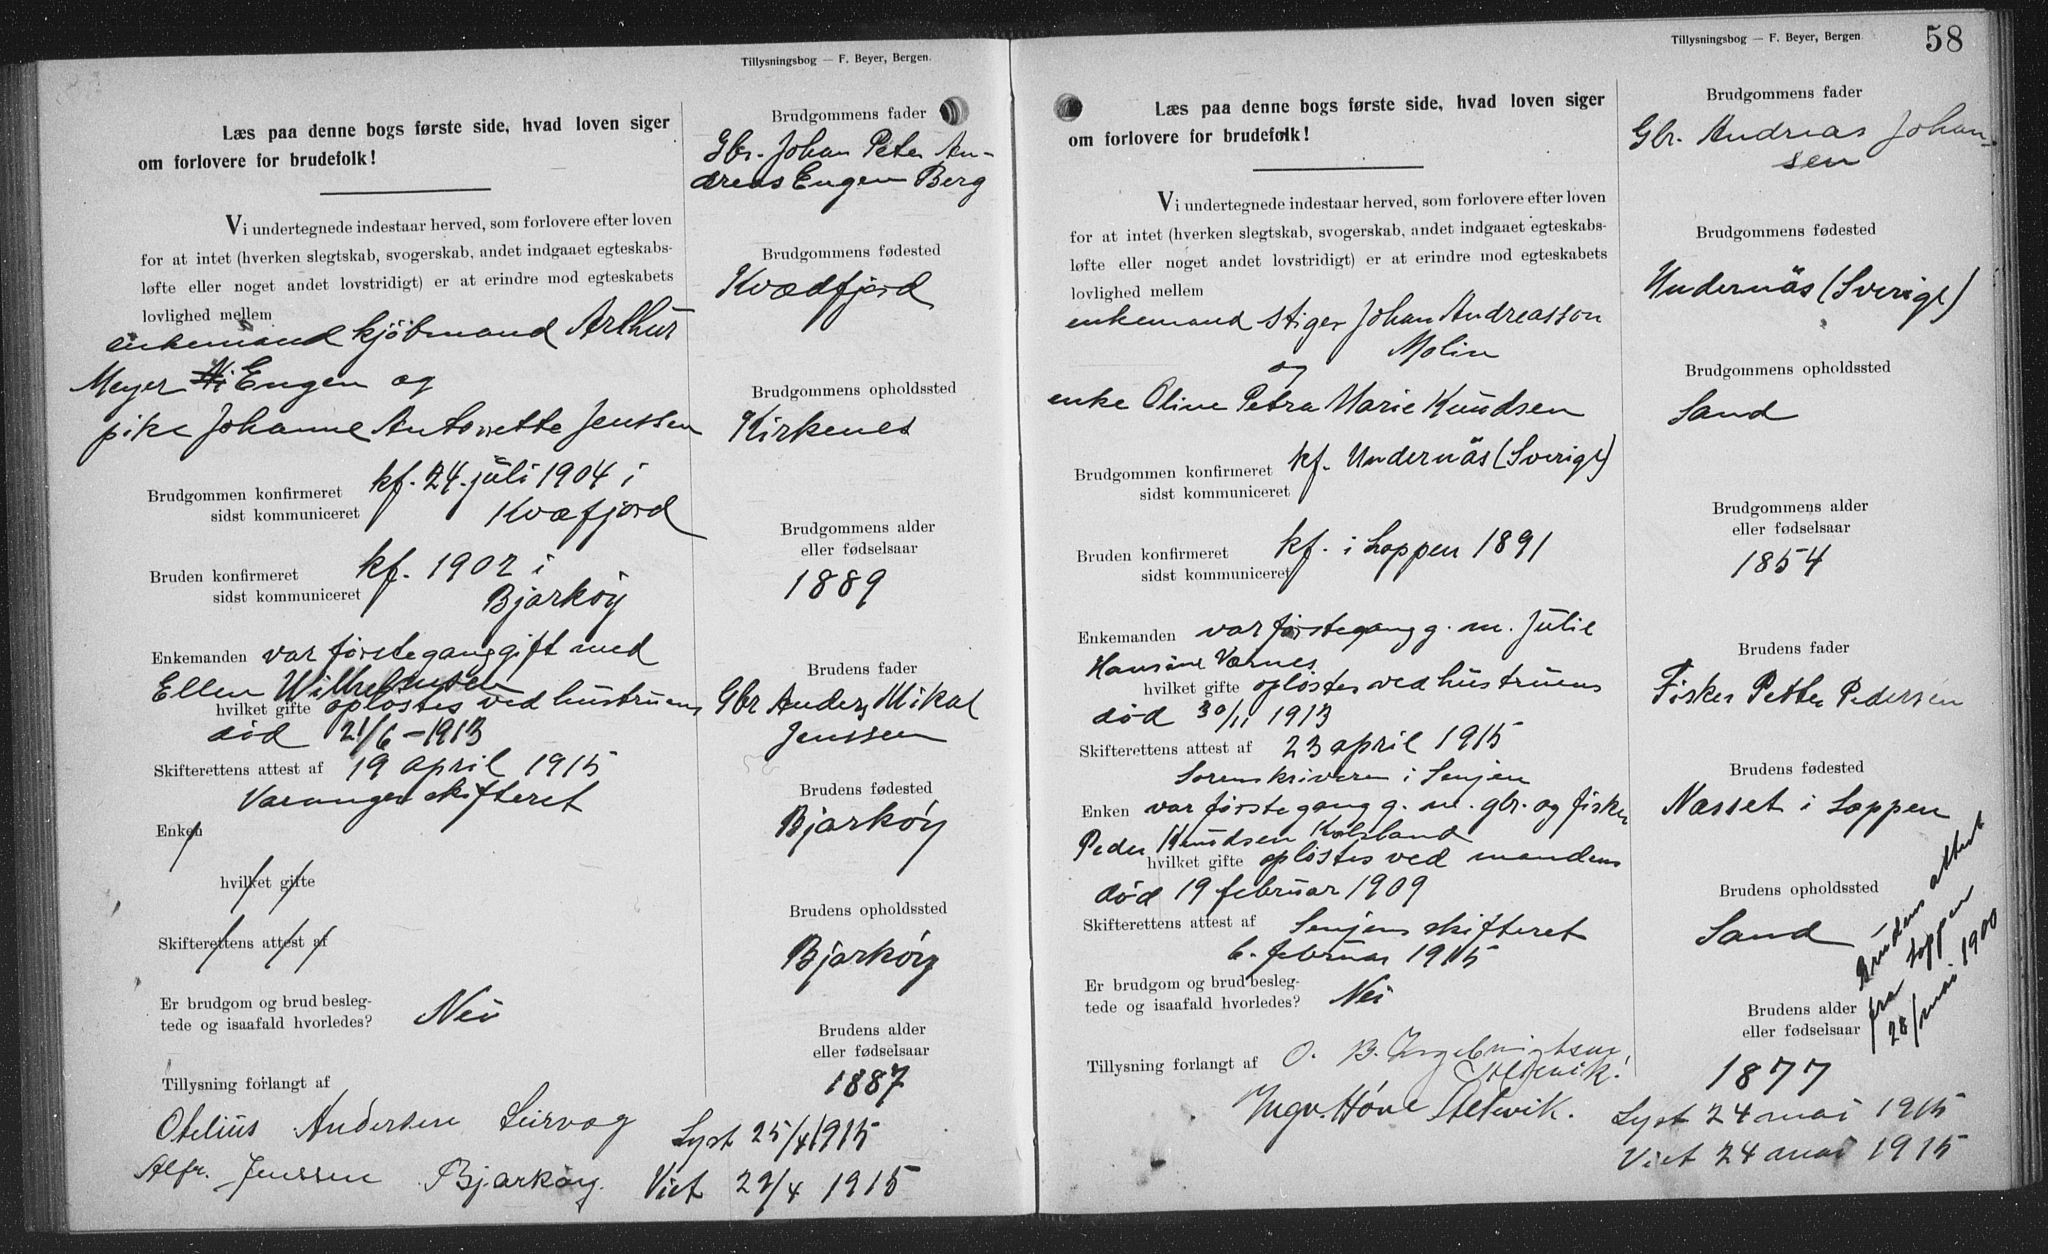 Tillysningsbog — F. Beyer, Bergen.
Læs paa denne bogs første side, hvad loven siger
om forlovere for brudefolk!
Vi undertegnede indestaar herved, som forlovere efter loven
for at intet (hverken slegtskab, svogerskab, andet indgaaet egteskabs-
løfte eller noget andet lovstridigt) er at erindre mod egteskabets
lovlighed mellem
enkemand kjøbmand Arthur
Meyer Engen og
pike Johanne Antonette Jenssen
Brudgommen konfirmeret kf. 24. juli 1904 i
sidst kommuniceret Kvæfjord
Bruden konfirmeret kf. 1902 i
sidst kommuniceret Bjarkøy
Enkemanden var første gang gift med
Ellen Wilhelmsen
hvilket gifte opløstes ved hustruens
død 21/6 - 1913
Skifterettens attest af 19 april 1915
Varanger skifteret
Enken
hvilket gifte
Skifterettens attest af
Er brudgom og brud besleg-
tede og isaafald hvorledes? Nei
Tillysning forlangt af
Otelius Andersen Leirvog
Alfr. Jenssen Bjarkøy.
Brudgommens fader
Gbr. Johan Peter An-
dreas Engen Berg
Brudgommens fødested
Kvædfjord
Brudgommens opholdssted
Kirkenes
Brudgommens alder
eller fødselsaar
1889
Brudens fader
Gbr Anders Mikal
Jenssen
Brudens fødested
Bjarkøy
Brudens opholdssted
Bjarkøy
Brudens alder
eller fødselsaar
1887
Lyst 25/4 1915
Viet 29/4 1915
Tillysningsbog — F. Beyer, Bergen.
58
Læs paa denne bogs første side, hvad loven siger
om forlovere for brudefolk!
Vi undertegnede indestaar herved, som forlovere efter loven
for at intet (hverken slegtskab, svogerskab, andet indgaaet egteskabs-
løfte eller noget andet lovstridigt) er at erindre mod egteskabets
lovlighed mellem
enkemand stiger Johan Andreasson
Molin
og
enke Oline Petra Marie Knudsen
Brudgommen konfirmeret kf. Undernäs (Sverige)
sidst kommuniceret
Bruden konfirmeret kf. i Loppen 1891
sidst kommuniceret
Enkemanden var første gang g. m. Julie
Hansine Værnes
hvilket gifte opløstes ved hustruens
død 30/11 1913
Skifterettens attest af 23 april 1915
Sorenskriveren i Senjen
Enken var første gang g. m. gbr. og fisker
Peder Knudsen
hvilket gifte opløstes ved mandens
død 19 februar 1909
Skifterettens attest af Senjens skifteret
6. februar 1915
Er brudgom og brud besleg-
tede og isaafald hvorledes? Nei
Tillysning forlangt af O. B. Ingebrigtsen
Ingv. Høve
Brudgommens fader
Gbr. Andreas Johan-
sen
Brudgommens fødested
Undernäs (Sverige)
Brudgommens opholdssted
Sand
Brudgommens alder
eller fødselsaar
1854
Brudens fader
Fisker Petter Pedersen
Brudens fødested
Næsset i Loppen
Brudens opholdssted
Sand
Brudens attest
fra Loppen
28/mai 1900
Brudens alder
eller fødselsaar
1877
Lyst 24 mai 1915
Viet 24 mai 1915